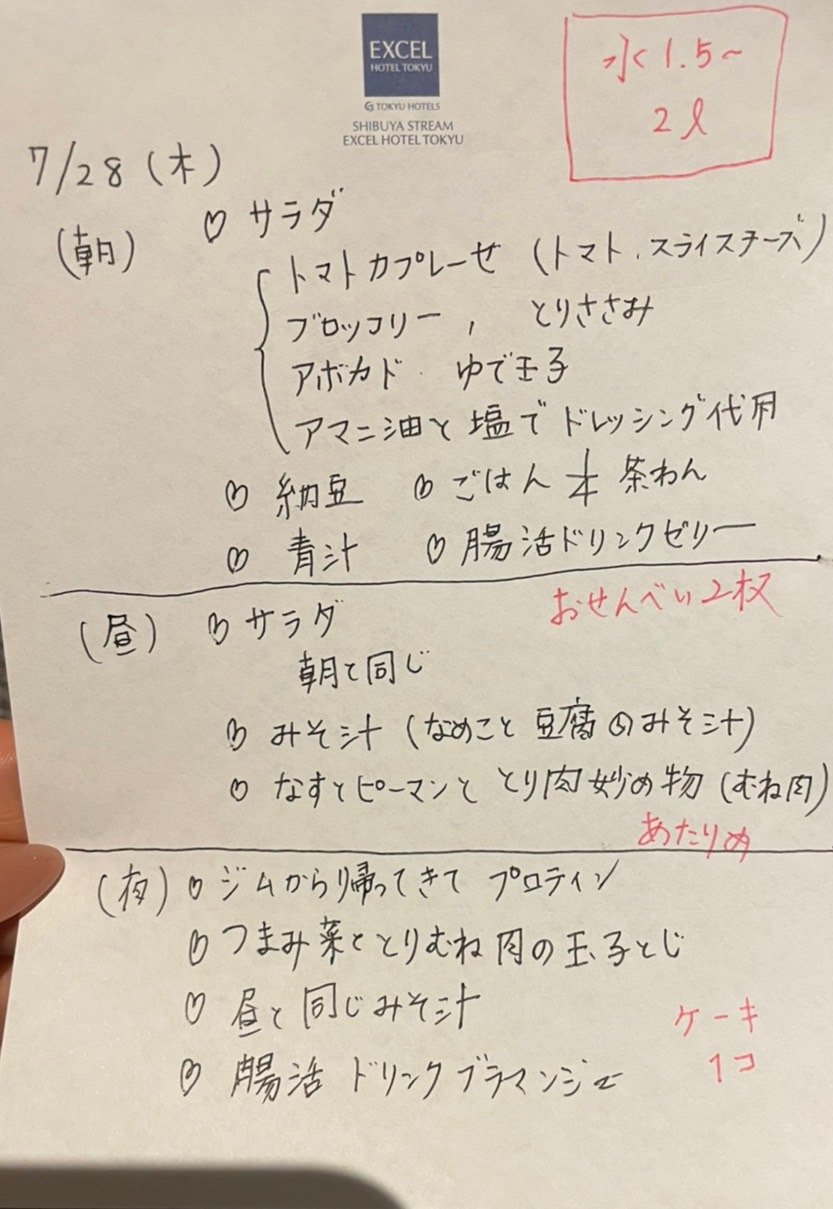 EXCEL
HOTEL TOKYU
TOKYU HOTELS
SHIBUYA STREAM
EXCEL HOTEL TOKYU
水1.5~
2ℓ
7/28(木)
(朝) ♡サラダ
トマトカプレーゼ(トマト、スライスチーズ)
ブロッコリー, とりささみ
アボカド. ゆで玉子
アマニ油と塩でドレッシング代用
♡納豆 ♡ごはん 茶わん
♡青汁 ♡腸活ドリンクゼリー
おせんべい2枚
(昼) ♡サラダ
朝と同じ
♡みそ汁(なめこと豆腐のみそ汁)
♡なすとピーマンととり肉炒め物(むね肉)
あたりめ
(夜)♡ジムから帰ってきてプロテイン
♡つまみ菜ととりむね肉の玉子とじ
♡昼と同じみそ汁
ケーキ
1コ
♡腸活ドリンクブラマンジェ